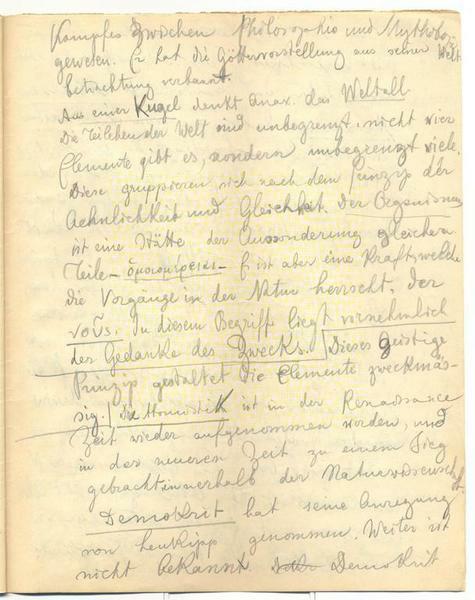 Kampfes zwischen Philosophie und Mytholog.
gewesen. Er hat die Göttervorstellung aus seiner Welt-
betrachtung verbannt.
Aus einer Kugel denkt Anax. das Weltall
Die Teilchen der Welt sind unbegrenzt, nicht vier
Elemente gibt es, sondern unbegrenzt viele.
Diese gruppieren sich nach dem Prinzip der
Aehnlichkeit und Gleichheit. Der Organismus
ist eine Stätte der Aussonderung gleicher
Teile – ὁμοιομέρειαι – Es ist aber eine Kraft, welche
die Vorgänge in der Natur herrscht. Der
νοῦς. In diesem Begriff liegt vornehmlich
der Gedanke des Zwecks. Dieses geistige
Prinzip gestaltet die Elemente zweckmäs-
sig. Die Atomistik ist in der Renaissance
Zeit wieder aufgenommen worden, und
in der neueren Zeit zu einem Sieg
gebracht innerhalb der Naturwissensch
Demokrit hat seine Anregung
von Leukipp genommen. Weiter ist
nicht bekannt Demokrit